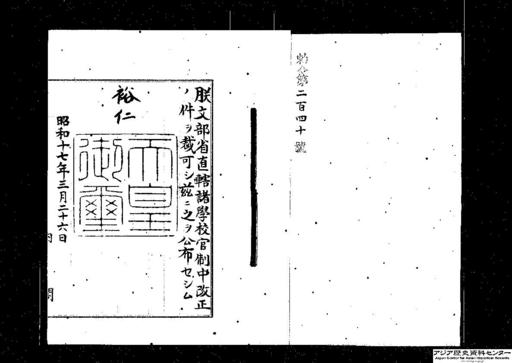 勅令第二百四十號
朕文部省直轄諸學校官制中改正
ノ件ヲ裁可シ茲ニ之ヲ公布セシム
裕仁
天皇
御璽
昭和十七年三月二十六日
内閣
アジア歴史資料センター
Japan Center for Asian Historical Records